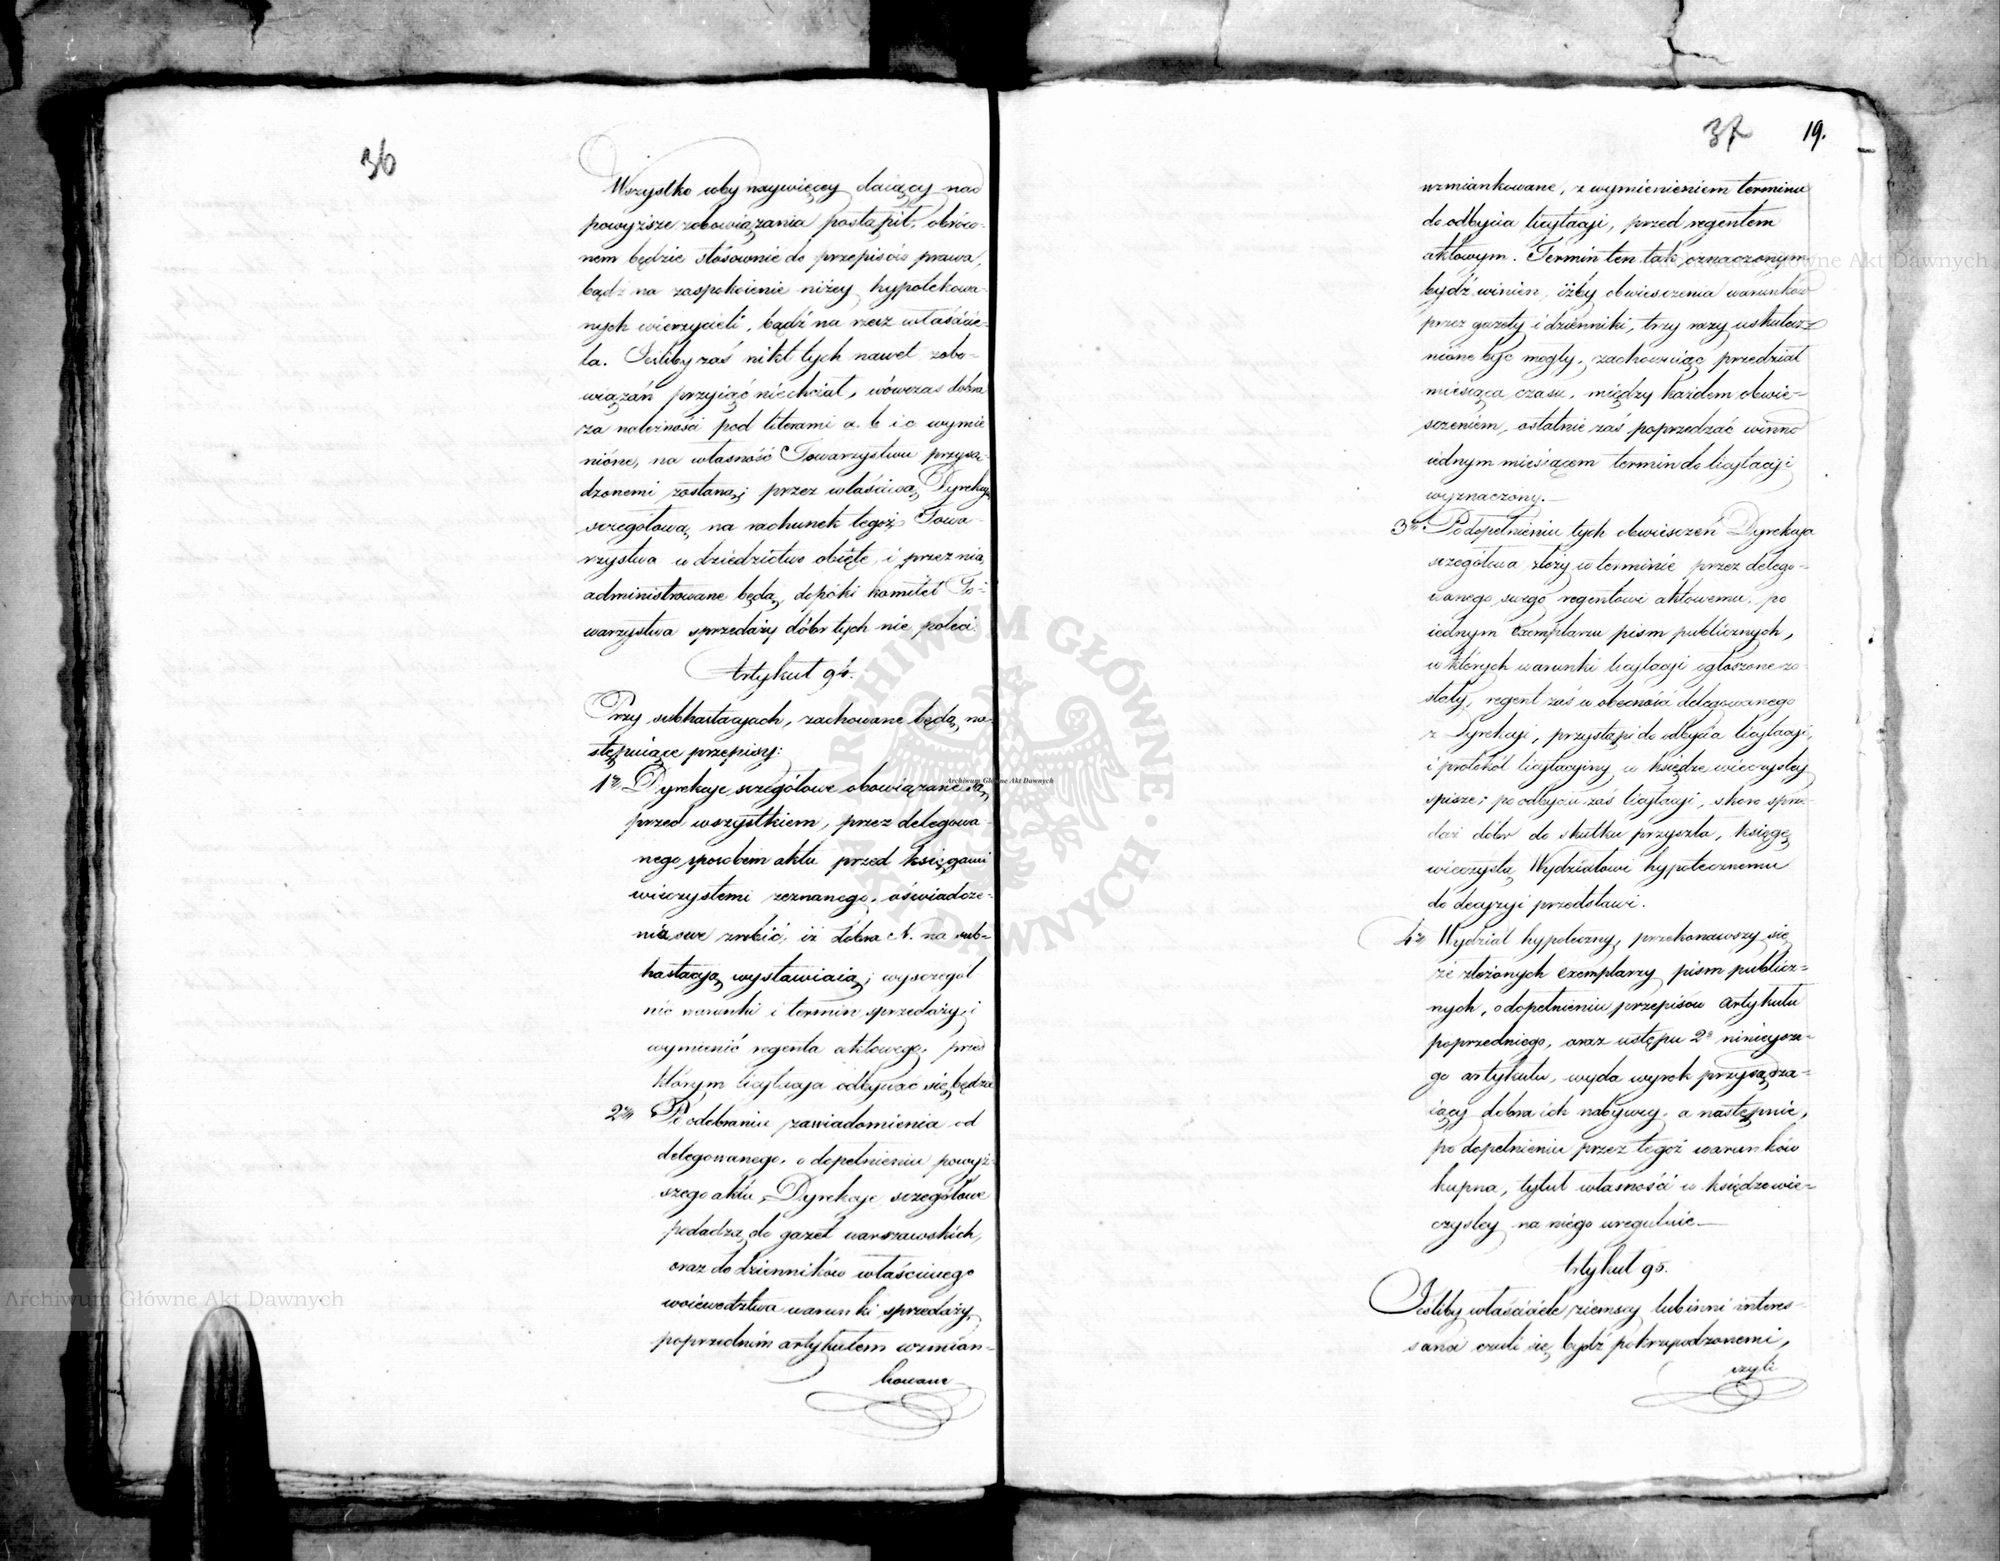 36
Wszystko coby naywięcey daiący nad
powyższe zobowiązania postąpił, obróco-
nem będzie stósownie do przepisów prawa,
bądź na zaspokoienie niżey hypotekowa-
nych wierzycieli, bądź na rzecz właścicie-
la. Jeśliby zaś nikt tych nawet zobo-
wiązań przyiąć niechciał, wówczas dobra
za należności pod literami a. b. i c wymie
nione, na własność Towarzystwu przysą-
dzonemi zostaną; przez właściwą Dyrekcyą
szczegółową na rachunek tegoż Towa-
rzystwa w dziedzictwo obięte, i przez nią
administrowane będą, dopóki komitet To-
warzystwa sprzedaży dóbr tych nie poleci.
Artykuł 94.
Przy subhastacyach, zachowane będą na-
stępuiące przepisy:
1e Dyrekcye szczegółowe obowiązane są,
przed wszystkiem, przez delegowa-
nego sposobem aktu przed księgami
wieczystemi zeznanego, oświadcze-
nia swe zrobić, iż dobra N. na sub-
hastacyą wystawiaią; wyszczegól
nić warunki i termin sprzedaży, i
wymienić regenta aktowego, przed
którym licytacya odbywać się będzie
2e Po odebraniu zawiadomienia od
delegowanego, o dopełnieniu powyż-
szego aktu, Dyrekcye szczegółowe
podadzą do gazet warszawskich,
oraz do dzienników właściwego
woiewództwa warunki sprzedaży,
poprzednim artykułem wzmian-
kowane
37 19.
wzmiankowane, z wymienieniem terminu
do odbycia licytacyi, przed regentem
aktowym. Termin ten tak oznaczonym
bydź winien, iżby obwieszczenia warunków
przez gazety i dzienniki, trzy razy uskutecz
nione być mogły, zachowuiąc przedział
miesiąca czasu, między każdem obwie-
szczeniem, ostatnie zaś poprzedzać winno
iednym miesiącem termin do licytacyi
wyznaczony.
3e Po dopełnieniu tych obwieszczeń Dyrekcya
szczegółowa złoży w terminie przez delego-
wanego swego regentowi aktowemu, po
iednym exemplarzu pism publicznych,
w których warunki licytacyi ogłoszone zo-
stały, regent zaś w obecności delegowanego
z Dyrekcyi, przystąpi do odbycia licytacyi,
i protokół licytacyiny w księdze wieczystey
spisze; po odbyciu zaś licytacyi, skoro sprze-
daż dóbr do skutku przyszła, księgę
wieczystą Wydziałowi hypotecznemu
do decyzyi przedstawi.
4e Wydział hypoteczny, przekonawszy się
ze złożonych exemplarzy pism publicz-
nych, o dopełnieniu przepisów artykułu
poprzedniego, oraz ustępu 2o ninieysze-
go artykułu, wyda wyrok przysądza-
iący dobra ich nabywcy, a następnie,
po dopełnieniu przez tegoż warunków
kupna, tytuł własności w księdze wie-
czystey na niego ureguluie.
Artykuł 95.
Jeśliby właściciele ziemscy lub inni interes-
sanci czuli się bydź pokrzywdzonemi,
czyli
ARCHIWUM GŁÓWNE AKT DAWNYCH
Archiwum Główne Akt Dawnych
Archiwum Główne Akt Dawnych
Archiwum Główne Akt Dawnych